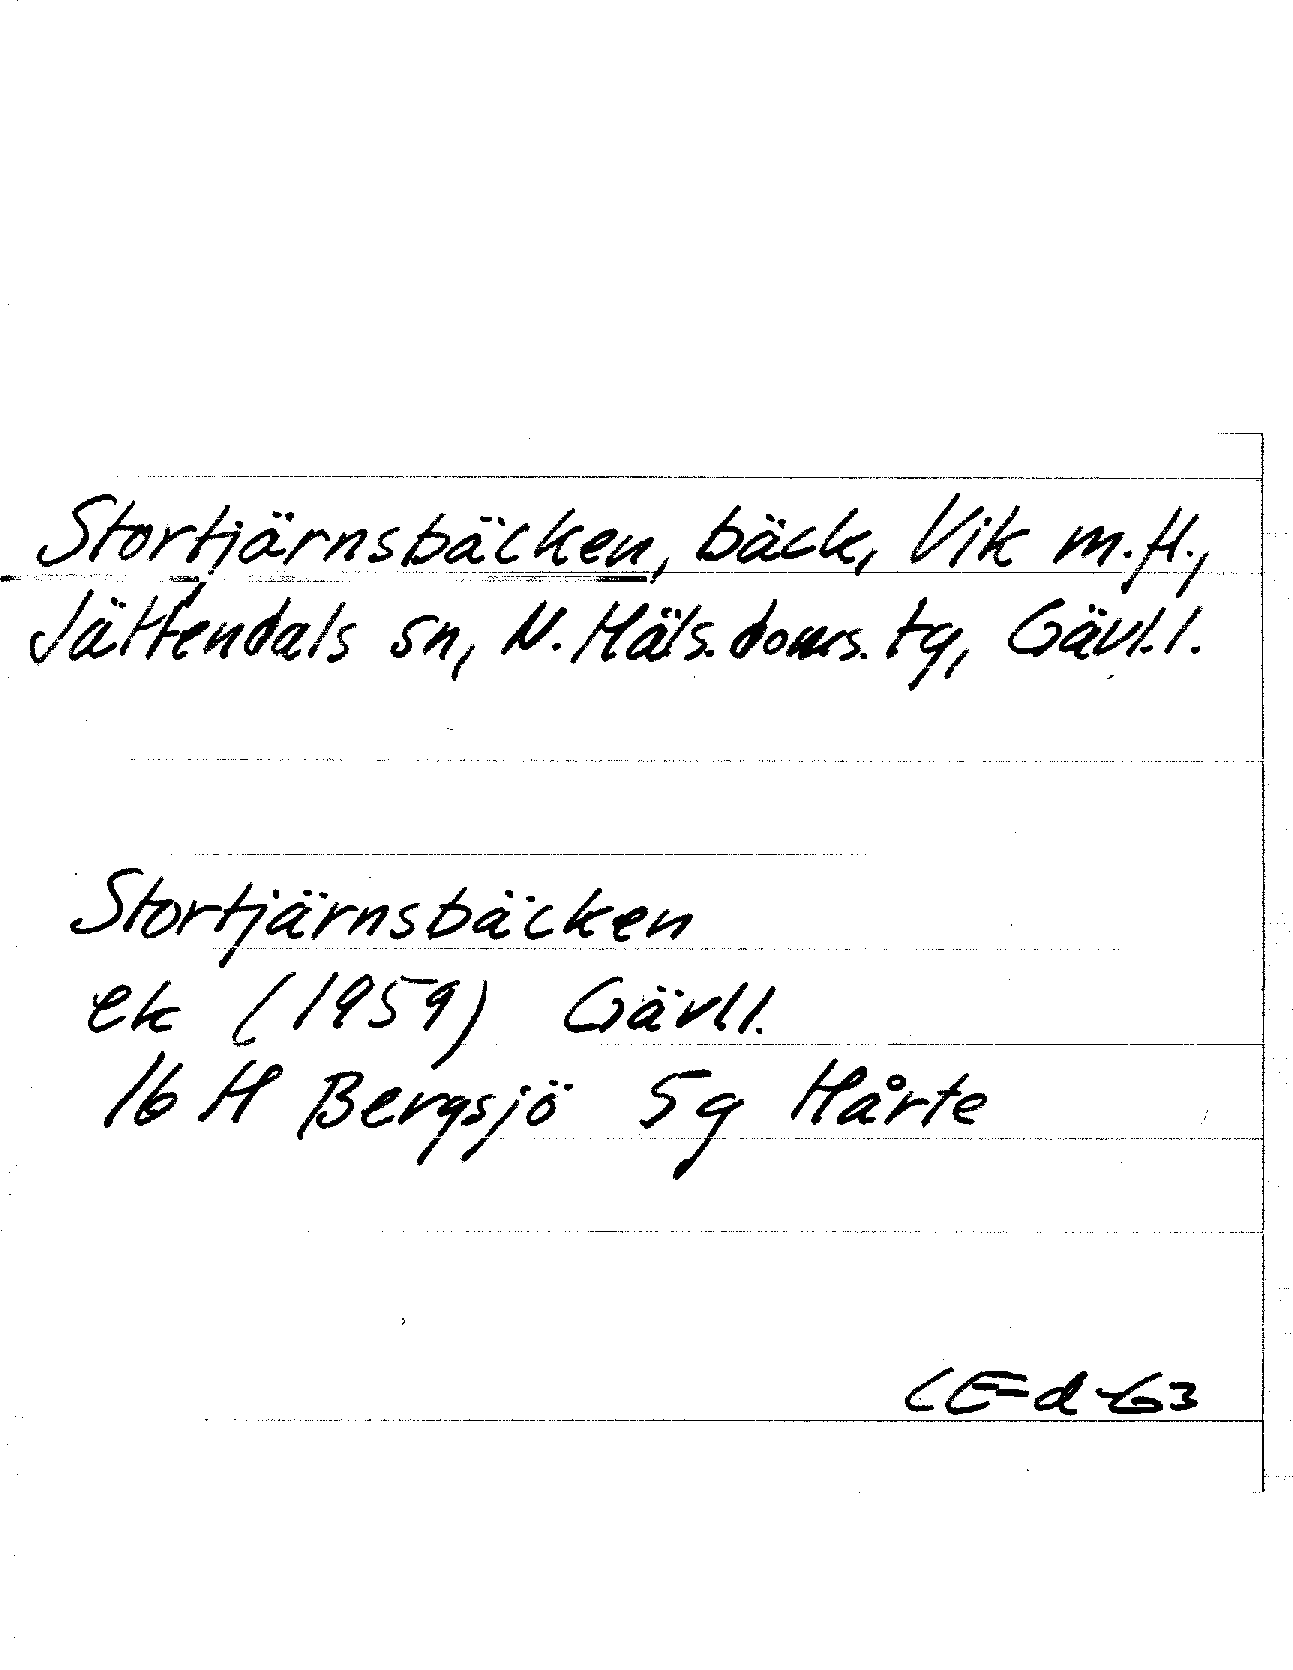 Stortjärnsbäcken, bäck, Vik m.fl.,
Jättendals sn, N. Häls. doms. tg, Gävl.l.
Stortjärnsbäcken
ek (1959) Gävl.l.
16 H Bergsjö 5g Hårte
CE-d -63